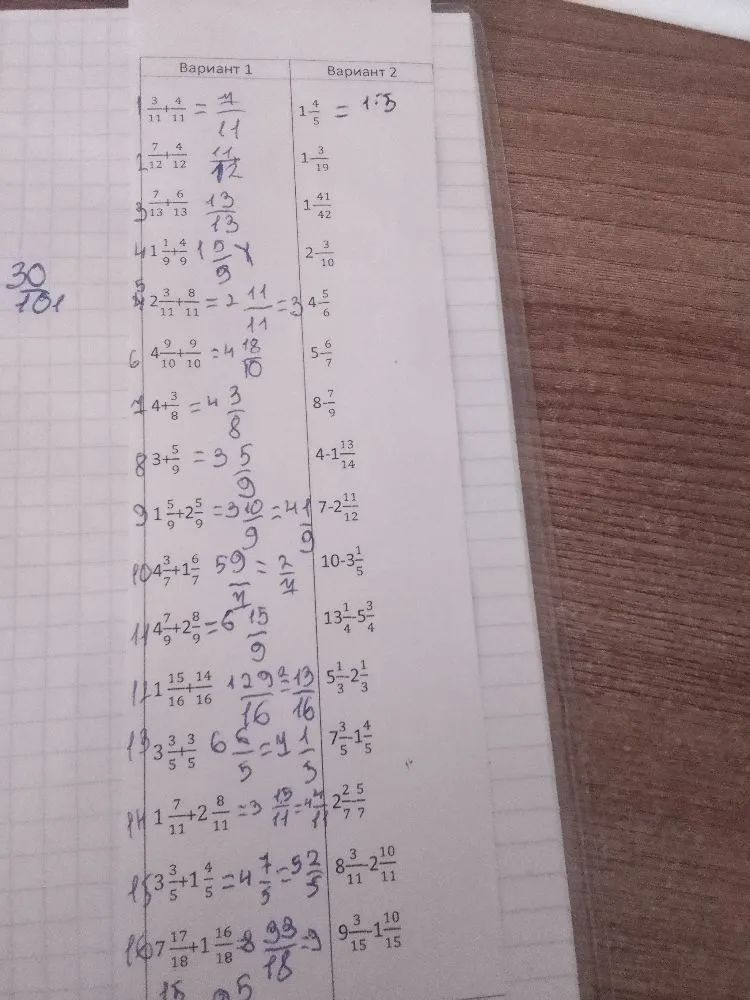 Вариант 1 Вариант 2
1 3/11+4/11 = 7/11 1 4/5 = 1:5
2 7/12+4/12 11/12 1-3/19
3 7/13+6/13 13/13 1-41/42
4 1 1/9+4/9 1 5/9 2-3/10
30/101
5 2 3/11+8/11 = 2 11/11 = 3 4-5/6
6 4 9/10+9/10 = 4 18/10 5-6/7
7 4+3/8 = 4 3/8 8-7/9
8 3+5/9 = 3 5/9 4-1 13/14
9 1 5/9+2 5/9 = 3 10/9 = 4 1/9 7-2 11/12
10 4 3/7+1 6/7 5 9/7 = 2/7 10-3 1/5
11 4 7/9+2 8/9 = 6 15/9 13 1/4-5 3/4
1 15/16+14/16 1 29/16 = 13/16 5 1/3-2 1/3
13 3 3/5+3/5 6 6/5 = 7 1/5 7 3/5-1 4/5
14 1 7/11+2 8/11 = 3 15/11 = 4 4/11 2 2/7 5/7
15 3 3/5+1 4/5 = 4 7/5 = 5 2/5 8 3/11-2 10/11
16 7 17/18+1 16/18 = 8 33/18 = 9 9 3/15-1 10/15
15